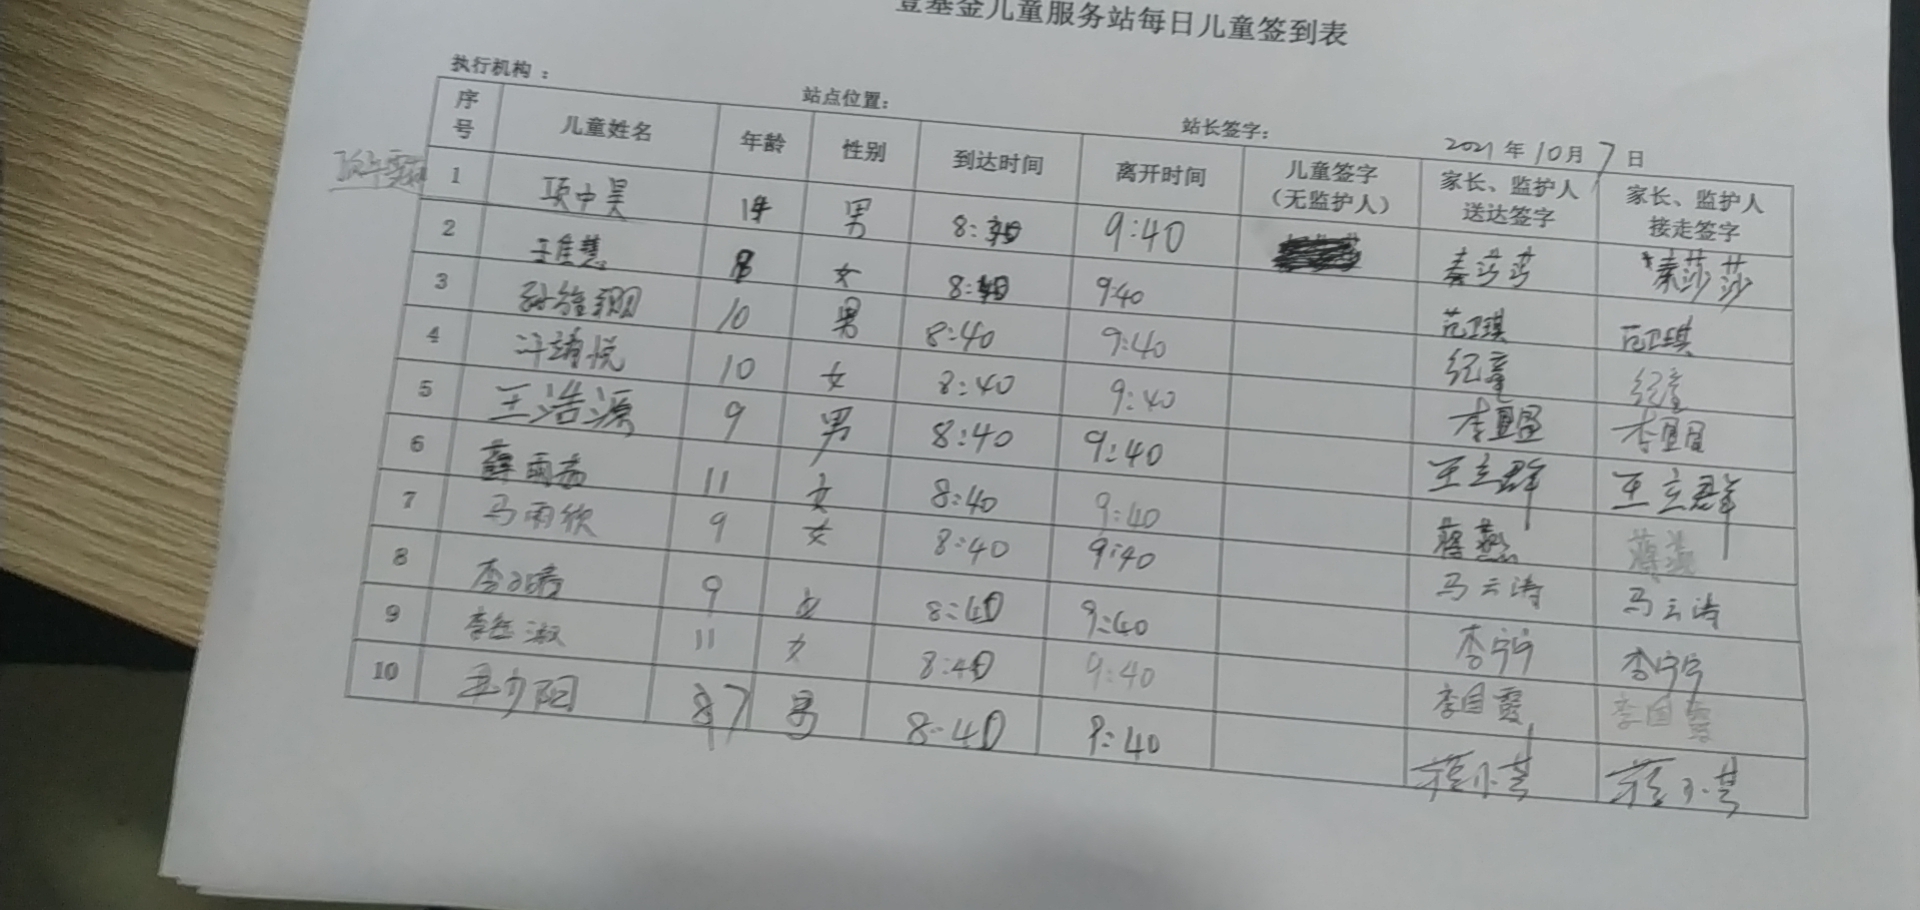 壹基金儿童服务站每日儿童签到表
执行机构： 站点位置： 站长签字： 2021年10月7日
序号 儿童姓名 年龄 性别 到达时间 离开时间 儿童签字（无监护人） 家长、监护人送达签字 家长、监护人接走签字
1 项中昊 男 8: 9:40 秦莎莎 秦莎莎
2 王佳慧 8 女 8: 9:40 范琪 范琪
3 10 男 8:40 9:40 纪童 纪童
4 靖悦 10 女 8:40 9:40 李 李
5 王浩源 9 男 8:40 9:40 王立群 王立群
6 薛雨 11 女 8:40 9:40 蒋燕 蒋燕
7 马雨欣 9 女 8:40 9:40 马云涛 马云涛
8 李 9 女 8:40 9:40 李宁宁 李宁宁
9 李 淑 11 女 8:40 9:40 李自霞 李自霞
10 夕阳 7 男 8:40 9:40 程小芸 程小芸